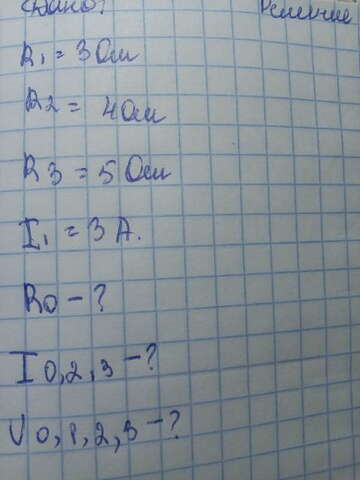 Дано: Решение
R1 = 3 Ом
R2 = 4 Ом
R3 = 5 Ом
I1 = 3 А.
R0 – ?
I 0,2,3 – ?
U 0,1,2,3 – ?